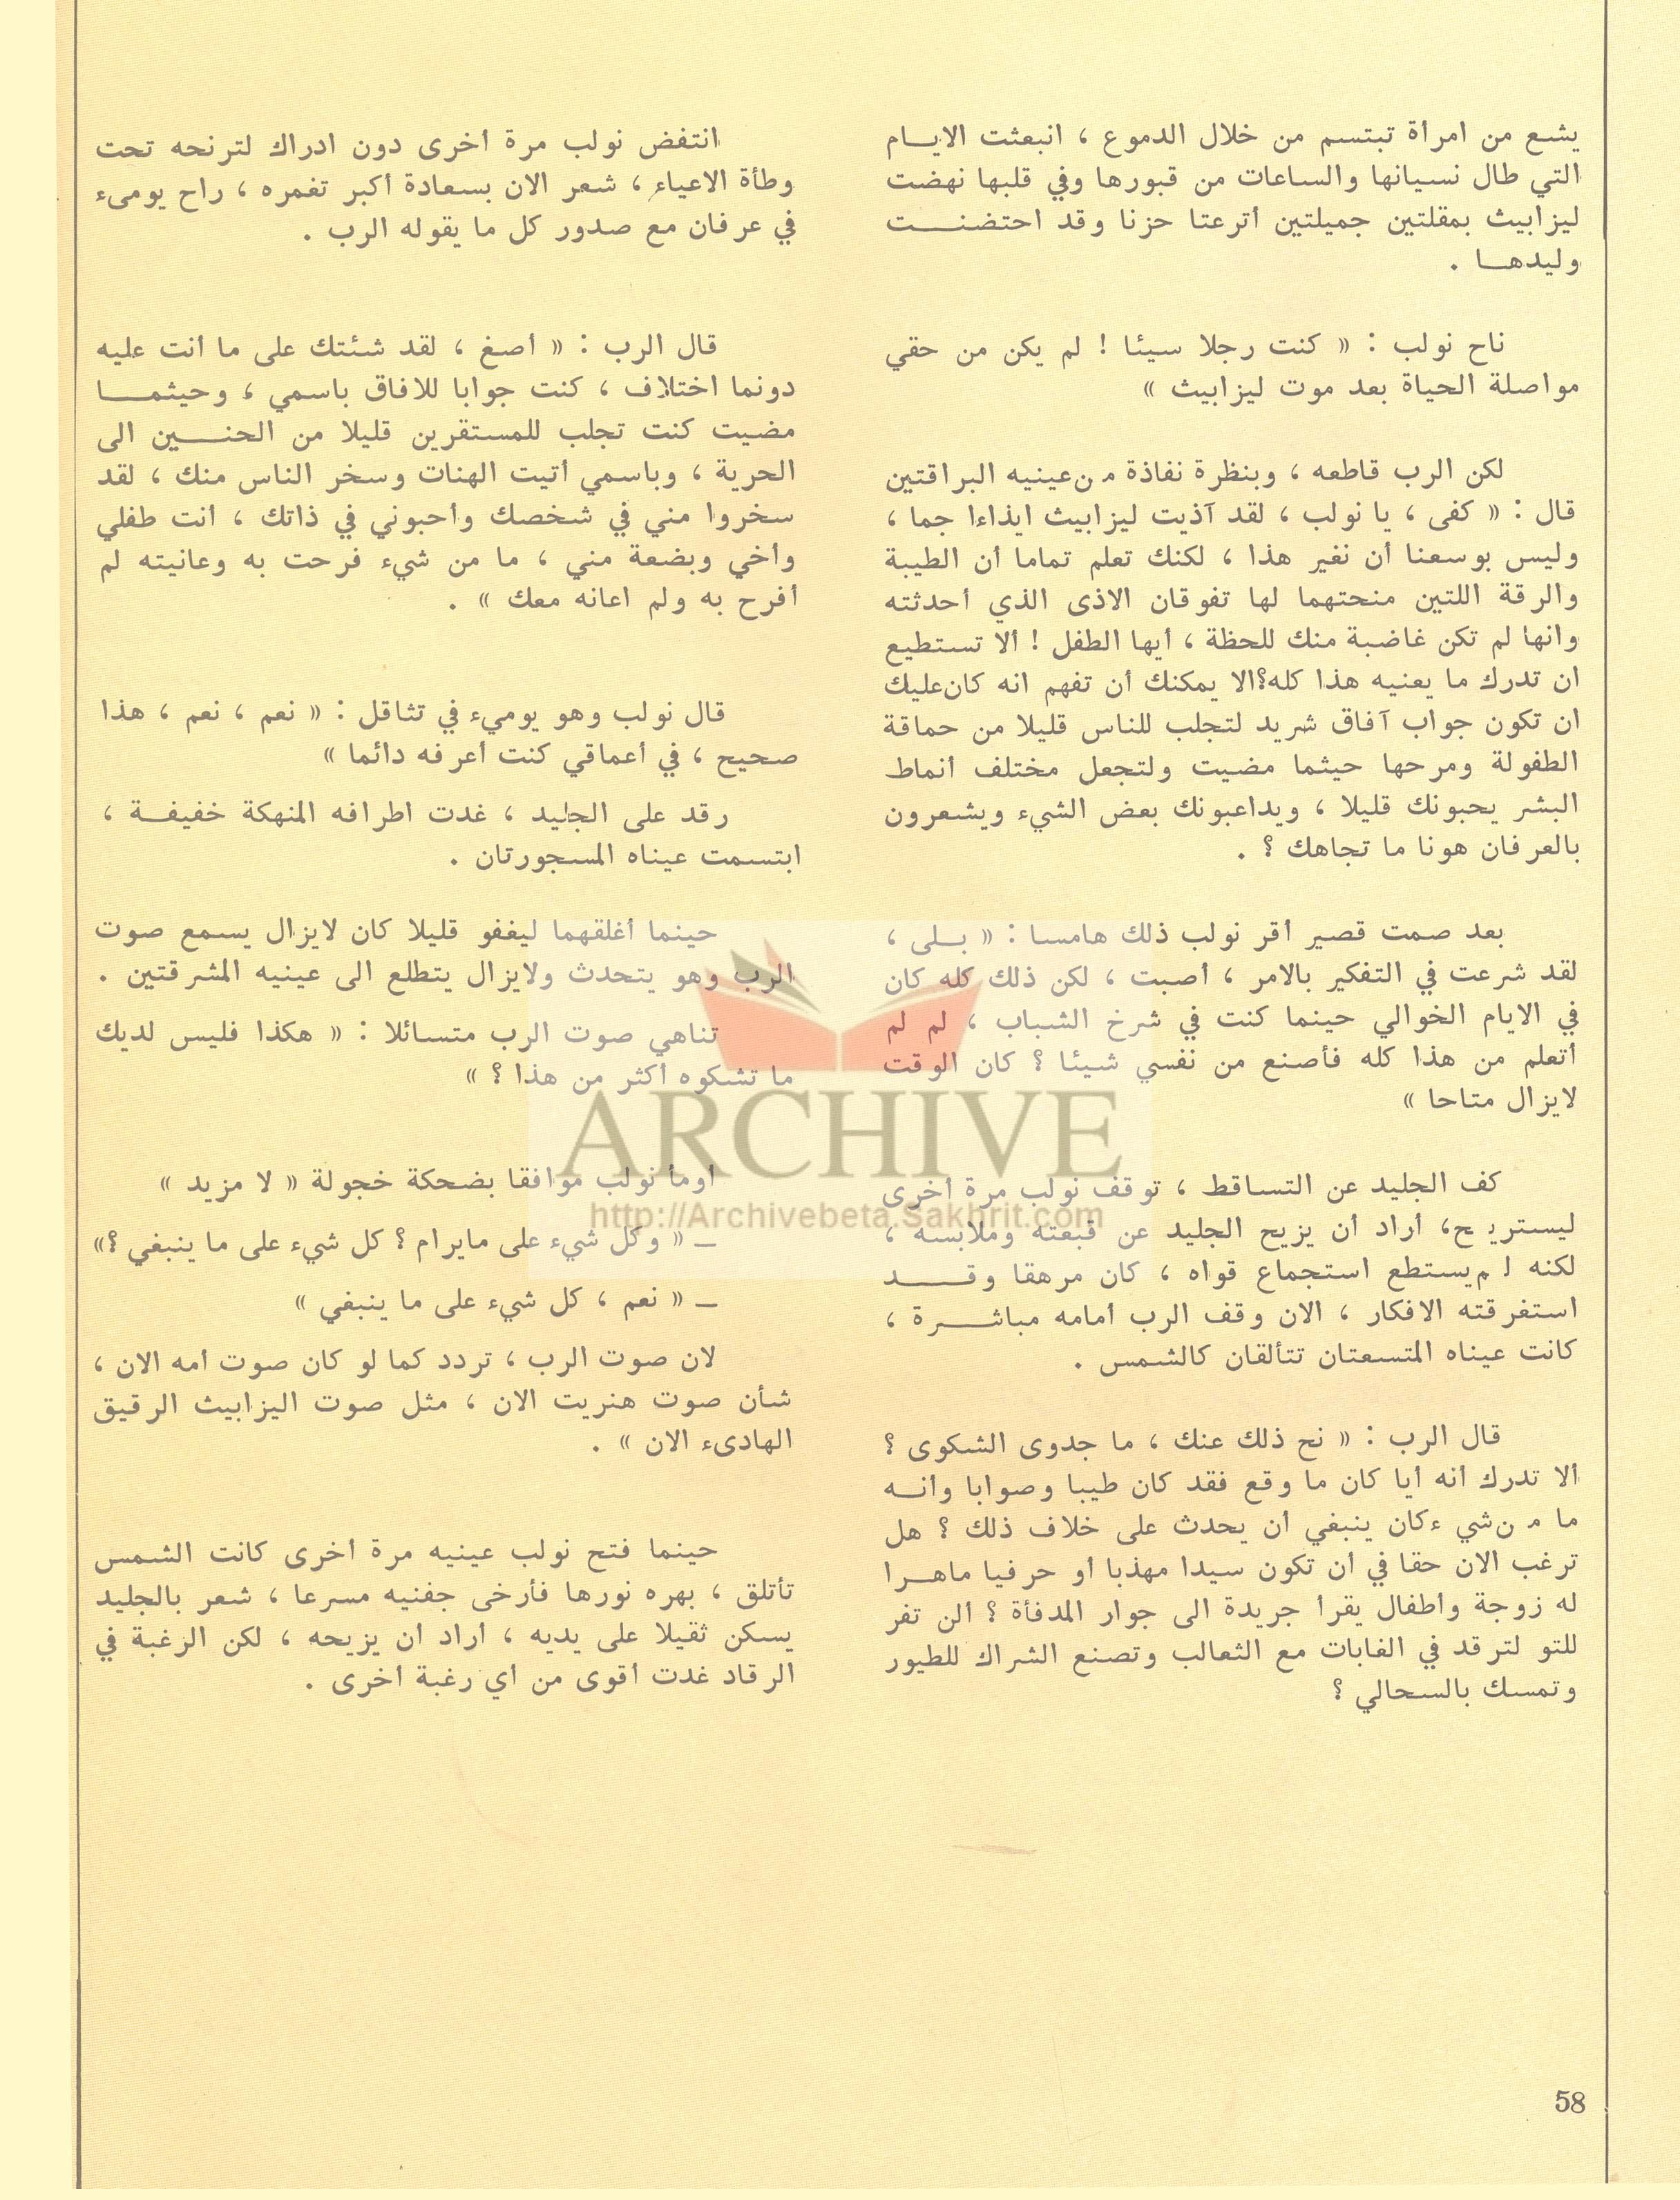 يشع من امرأة تبتسم من خلال الدموع ، انبعثت الايام
التي طال نسيانها والساعات من قبورها وفي قلبها نهضت
ليزابيث بمقلتين جميلتين أترعتا حزنا وقد احتضنت
وليدها .
ناح نولب : « كنت رجلا سيئا ! لم يكن من حقي
مواصلة الحياة بعد موت ليزابيث »
لكن الرب قاطعه ، وبنظرة نفاذة من عينيه البراقتين
قال : « كفى ، يا نولب ، لقد آذيت ليزابيث ايذاءا جما ،
وليس بوسعنا أن نغير هذا ، لكنك تعلم تماما أن الطيبة
والرقة اللتين منحتهما لها تفوقان الاذى الذي أحدثته
وانها لم تكن غاضبة منك للحظة ، أيها الطفل ! ألا تستطيع
ان تدرك ما يعنيه هذا كله؟الا يمكنك أن تفهم انه كان عليك
ان تكون جواب آفاق شريد لتجلب للناس قليلا من حماقة
الطفولة ومرحها حيثما مضيت ولتجعل مختلف أنماط
البشر يحبونك قليلا ، ويداعبونك بعض الشيء ويشعرون
بالعرفان هونا ما تجاهك ؟ .
بعد صمت قصير أقر نولب ذلك هامسا : « بلى ،
لقد شرعت في التفكير بالامر ، أصبت ، لكن ذلك كله كان
في الايام الخوالي حينما كنت في شرخ الشباب ، لم لم
أتعلم من هذا كله فأصنع من نفسي شيئا ؟ كان الوقت
لايزال متاحا »
كف الجليد عن التساقط ، توقف نولب مرة أخرى
ليستريح، أراد أن يزيح الجليد عن قبعته وملابسه ،
لكنه لم يستطع استجماع قواه ، كان مرهقا وقد
استغرقته الافكار ، الان وقف الرب أمامه مباشرة ،
كانت عيناه المتسعتان تتألقان كالشمس .
قال الرب : « نح ذلك عنك ، ما جدوى الشكوى ؟
ألا تدرك أنه أيا كان ما وقع فقد كان طيبا وصوابا وأنه
ما من شيء كان ينبغي أن يحدث على خلاف ذلك ؟ هل
ترغب الان حقا في أن تكون سيدا مهذبا أو حرفيا ماهرا
له زوجة وأطفال يقرأ جريدة الى جوار المدفأة ؟ ألن تفر
للتو لترقد في الغابات مع الثعالب وتصنع الشراك للطيور
وتمسك بالسحالي ؟
انتفض نولب مرة أخرى دون ادراك لترنحه تحت
وطأة الاعياء ، شعر الان بسعادة أكبر تغمره ، راح يومىء
في عرفان مع صدور كل ما يقوله الرب .
قال الرب : « أصغ ، لقد شئتك على ما أنت عليه
دونما اختلاف ، كنت جوابا للافاق باسمي ، وحيثما
مضيت كنت تجلب للمستقرين قليلا من الحنين الى
الحرية ، وباسمي أتيت الهنات وسخر الناس منك ، لقد
سخروا مني في شخصك وأحبوني في ذاتك ، أنت طفلي
وأخي وبضعة مني ، ما من شيء فرحت به وعانيته لم
أفرح به ولم اعانه معك » .
قال نولب وهو يوميء في تثاقل : « نعم ، نعم ، هذا
صحيح ، في أعماقي كنت أعرفه دائما »
رقد على الجليد ، غدت اطرافه المنهكة خفيفة ،
ابتسمت عيناه المسجورتان .
حينما أغلقهما ليغفو قليلا كان لايزال يسمع صوت
الرب وهو يتحدث ولايزال يتطلع الى عينيه المشرقتين .
تناهي صوت الرب متسائلا : « هكذا فليس لديك
ما تشكوه أكثر من هذا ؟ »
أومأ نولب موافقا بضحكة خجولة « لا مزيد »
ــ « وكل شيء على مايرام ؟ كل شيء على ما ينبغي ؟»
ــ « نعم ، كل شيء على ما ينبغي »
لان صوت الرب ، تردد كما لو كان صوت أمه الان ،
شأن صوت هنريت الان ، مثل صوت اليزابيث الرقيق
الهادىء الان » .
حينما فتح نولب عينيه مرة أخرى كانت الشمس
تأتلق ، بهره نورها فأرخى جفنيه مسرعا ، شعر بالجليد
يسكن ثقيلا على يديه ، أراد أن يزيحه ، لكن الرغبة في
الرقاد غدت أقوى من أي رغبة أخرى .
ARCHIVE
http://Archivebeta.Sakhrit.com
58